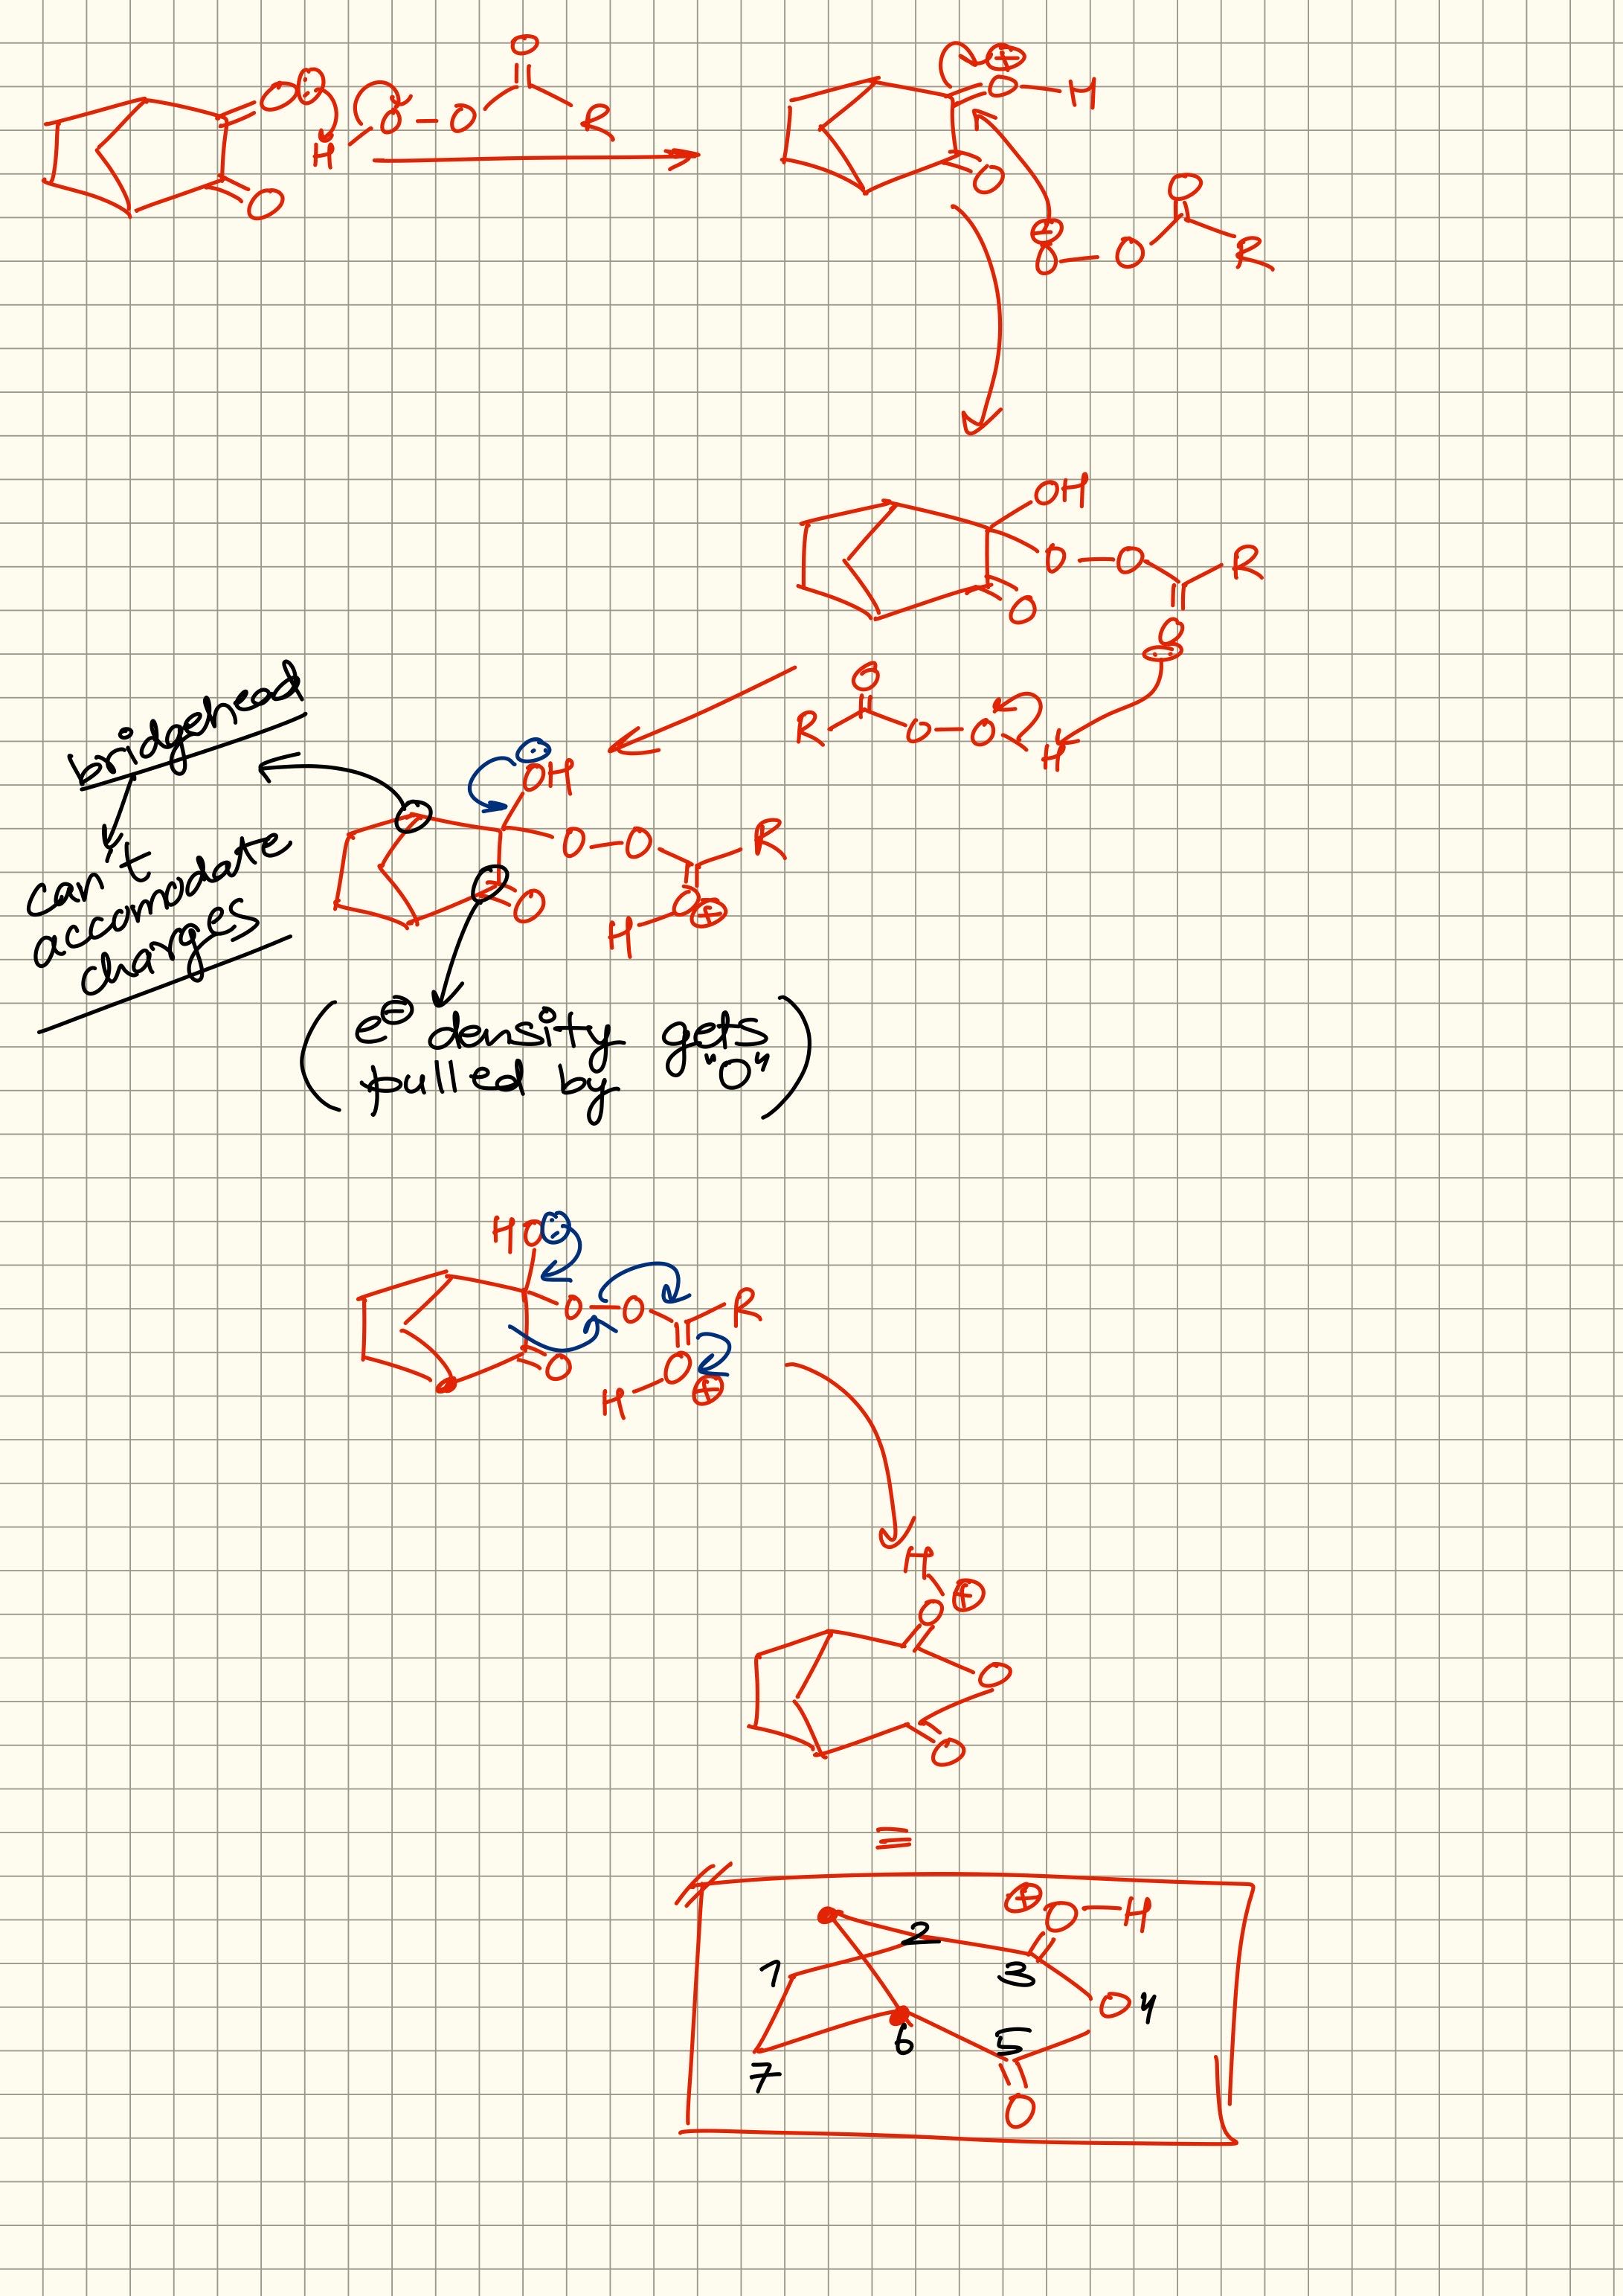 O
O
H
O
O
O
R
O
⊕
O
H
O
⊖
O
O
O
R
OH
O
O
R
O
O
O
R
O
O
O
H
bridgehead
can't
accomodate
charges
OH
O
O
R
O
O
⊕
H
(e⊖ density gets
pulled by "O")
HO
O
O
R
O
O
⊕
H
H
⊕
O
O
O
=
⊕
O
H
2
1
3
O
4
6
5
7
O